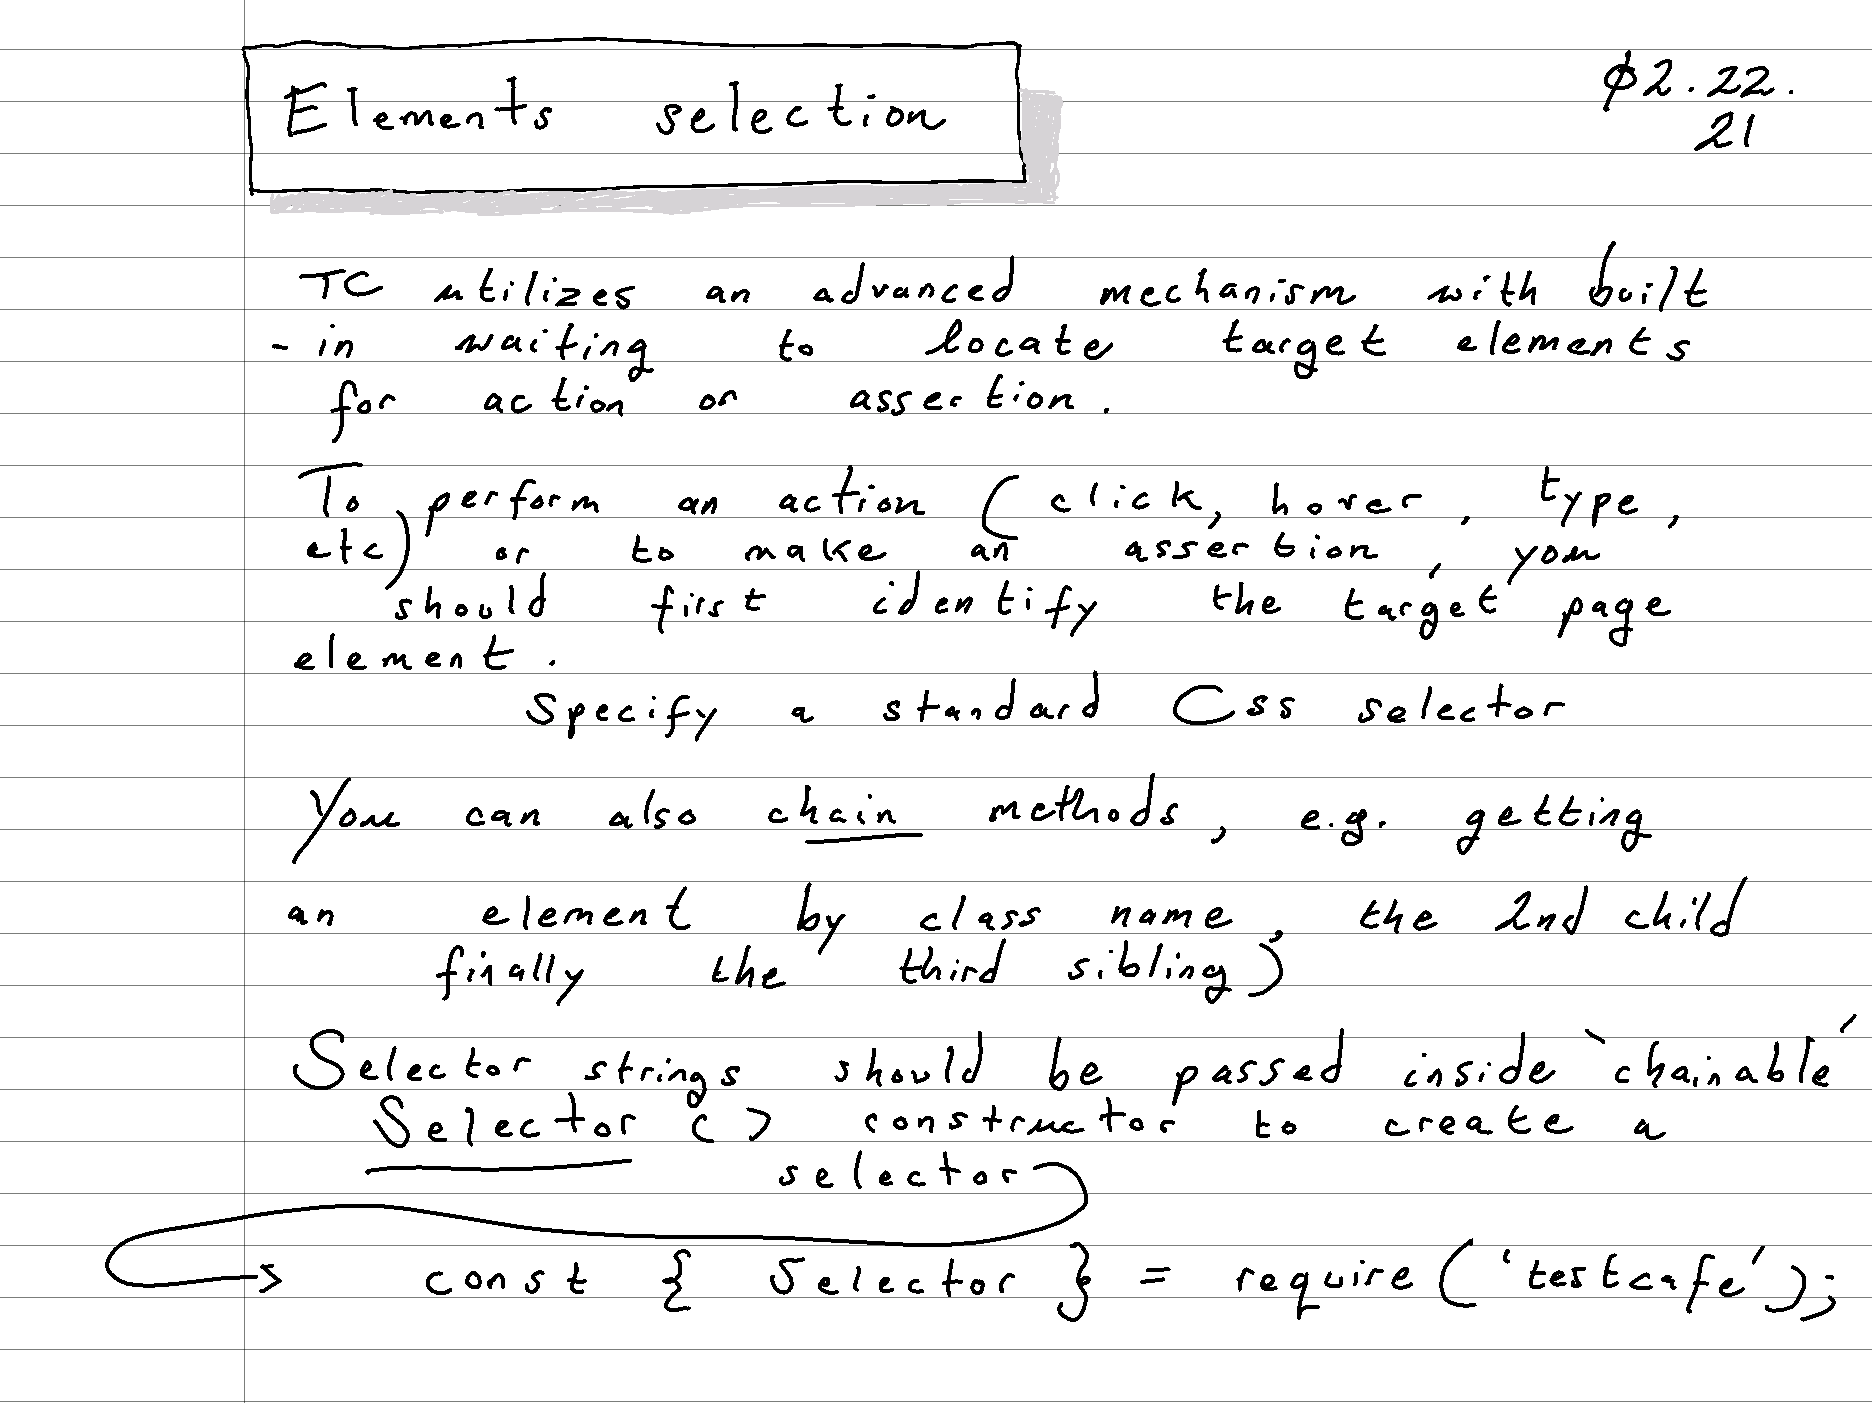 Elements selection
02.22.
21
TC utilizes an advanced mechanism with built
- in waiting to locate target elements
for action or assertion.
To perform an action (click, hover, type,
etc) or to make an assertion, you
should first identify the target page
element.
Specify a standard Css selector
You can also chain methods, e.g. getting
an element by class name, the 2nd child
finally the third sibling)
Selector strings should be passed inside `chainable´
Selector () constructor to create a
selector
→ const { Selector } = require ('testcafe');